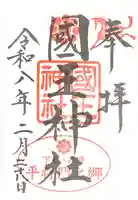 奉拝
國王神社
令和八年二月二十八日
國王神社